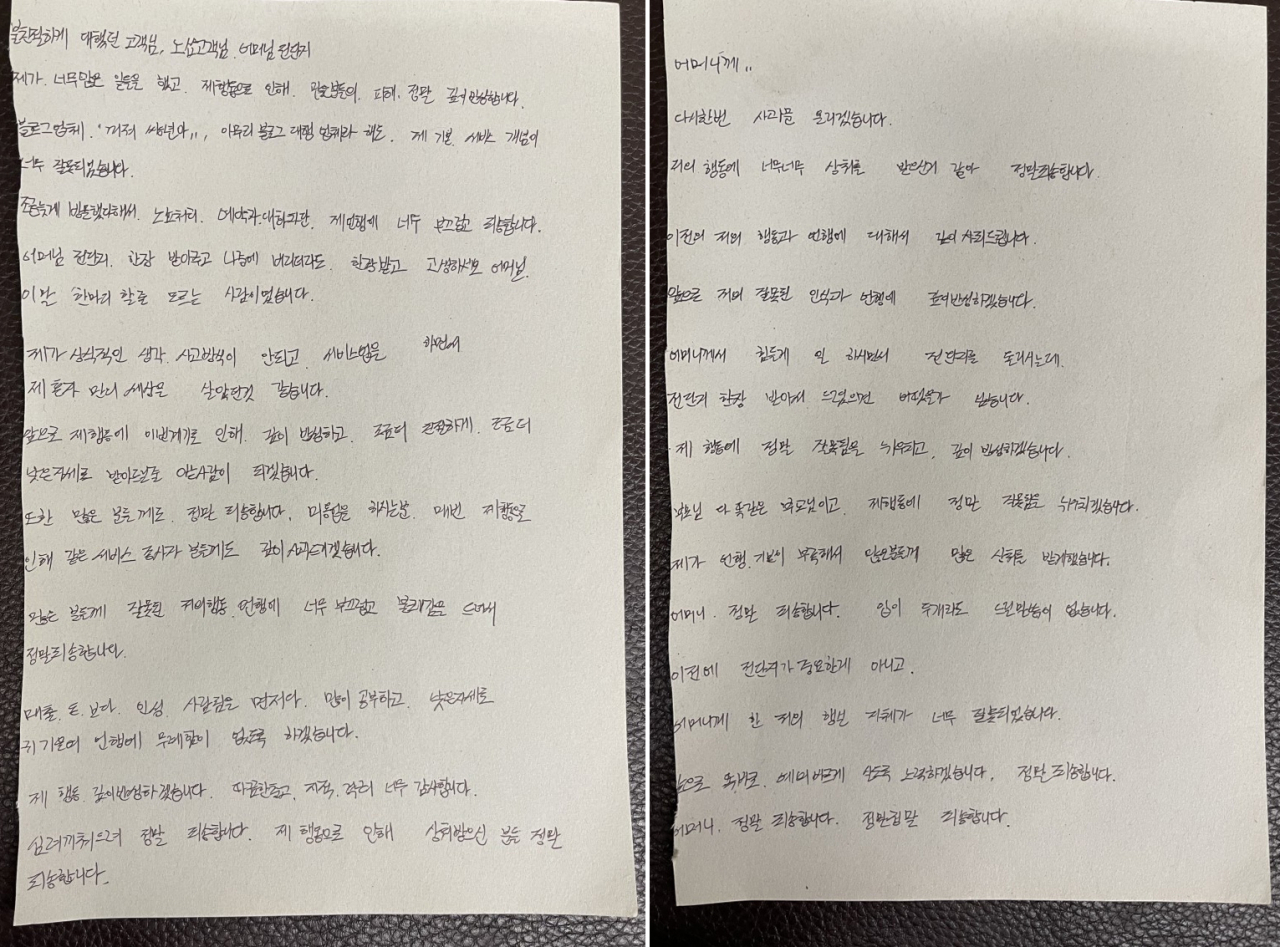 불친절하게 대했던 고객님, 노쇼고객님. 어머님 전단지
제가. 너무많은 일들을 했고. 제행동으로 인해. 많은분들의. 피해. 정말 깊이반성합니다.
블로그업체. "꺼져 썅년아,,, 아무리 블로그 대행 업체라 해도. 제 기본 서비스 개념이
너무 잘못되었습니다.
조금늦게 방문했다해서. 노쇼처리. 예약과.대하파탄. 제언행에 너무 부끄럽고 죄송합니다.
어머님 전단지. 한장 받아주고 나중에 버리더라도. 한장받고 고생하세요 어머님.
이말 한마디 할줄 모르는 사람이었습니다.
제가 상식적인 생각. 사고방식이 안되고. 서비스업을 하면서
제 혼자 만의 세상을 살았던것 같습니다.
앞으로 제행동에 이번계기로 인해. 깊이 반성하고. 조금더 친절하게. 조금더
낮은자세로 받아드릴줄 아는사람이 되겠습니다.
또한 많은 분들께도. 정말 죄송합니다. 미용업을 하시는분. 매번 제행동으로
인해 같은 서비스 종사자 분들게도 깊이사과드리겠습니다.
많은 분들께 잘못된 저의행동 언행에 너무 부끄럽고 불쾌감을 드려서
정말죄송합니다.
매출. 돈. 보다. 인성. 사람됨을 먼저다. 많이 공부하고. 낮은자세로
귀 기울여 언행에 무례함이 없도록 하겠습니다.
제 행동. 깊이반성하겠습니다. 따끔한충고, 지적. 격려 너무 감사합니다.
심려끼쳐드려 정말 죄송합니다. 제 행동으로 인해 상처받으신 분들 정말
죄송합니다.
어머니께,,
다시한번 사과를 올리겠습니다.
저의 행동에 너무너무 상처를 받으신거 같아 정말죄송합니다.
이전의 저의 행동과 언행에 대해서 깊이 사죄드립니다.
앞으로 저의 잘못된 인식과 언행에 깊이반성하겠습니다.
어머니께서 힘들게 일 하시면서 전단지를 돌리시는데.
전단지 한장 받아서 드렸으면 버렸을가 싶습니다.
제 행동에 정말 잘못됨을 뉘우치고, 깊이 반성하겠습니다.
부모님 다 똑같은 부모님이고. 제행동에 정말 잘못됨을 뉘우치겠습니다.
제가 언행. 기본이 부족해서 많은분들께 많은 상처를 받게했습니다.
어머니. 정말 죄송합니다. 입이 두개라도 드릴말씀이 없습니다.
이전에 전단지가 중요한게 아니고.
어머니께 한 저의 행실 자체가 너무 잘못되었습니다.
앞으로 똑바로. 예의바르게 살도록 노력하겠습니다. 정말 죄송합니다.
어머니. 정말 죄송합니다. 정말정말 죄송합니다.